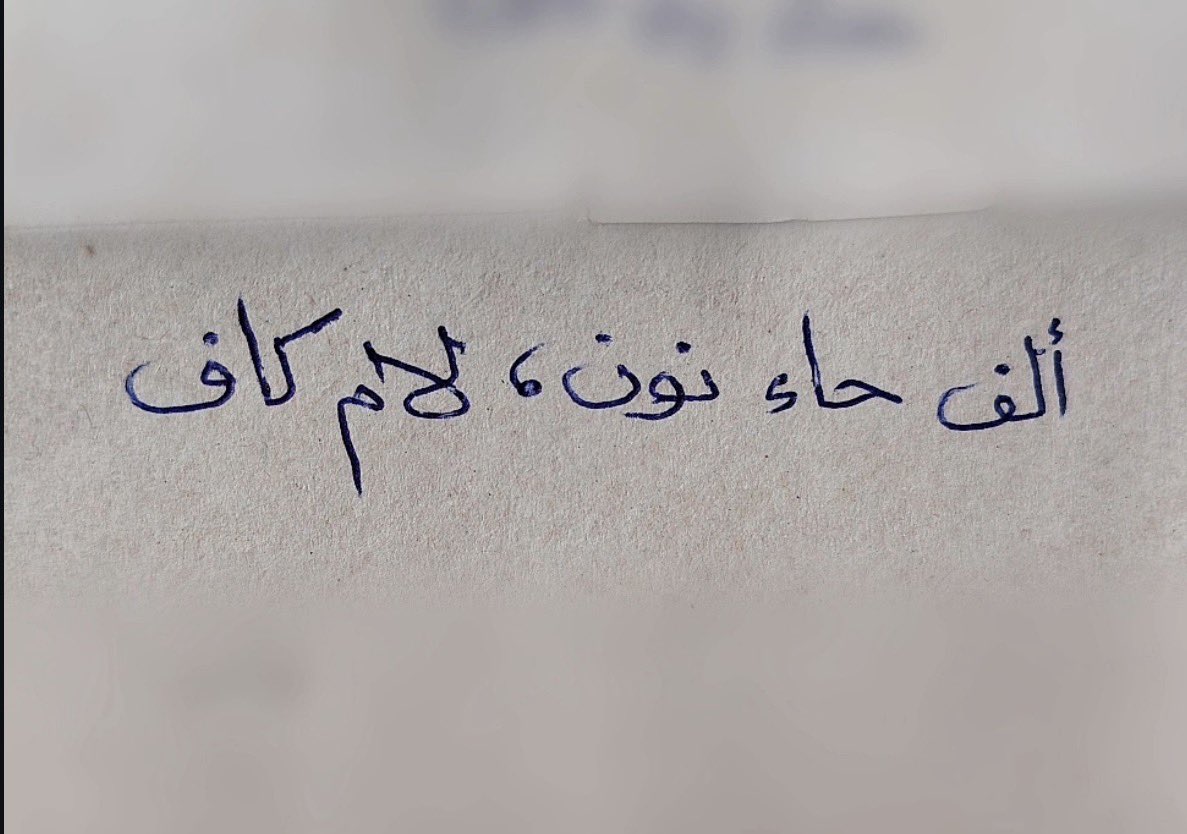 ألف حاء نون، لام كاف